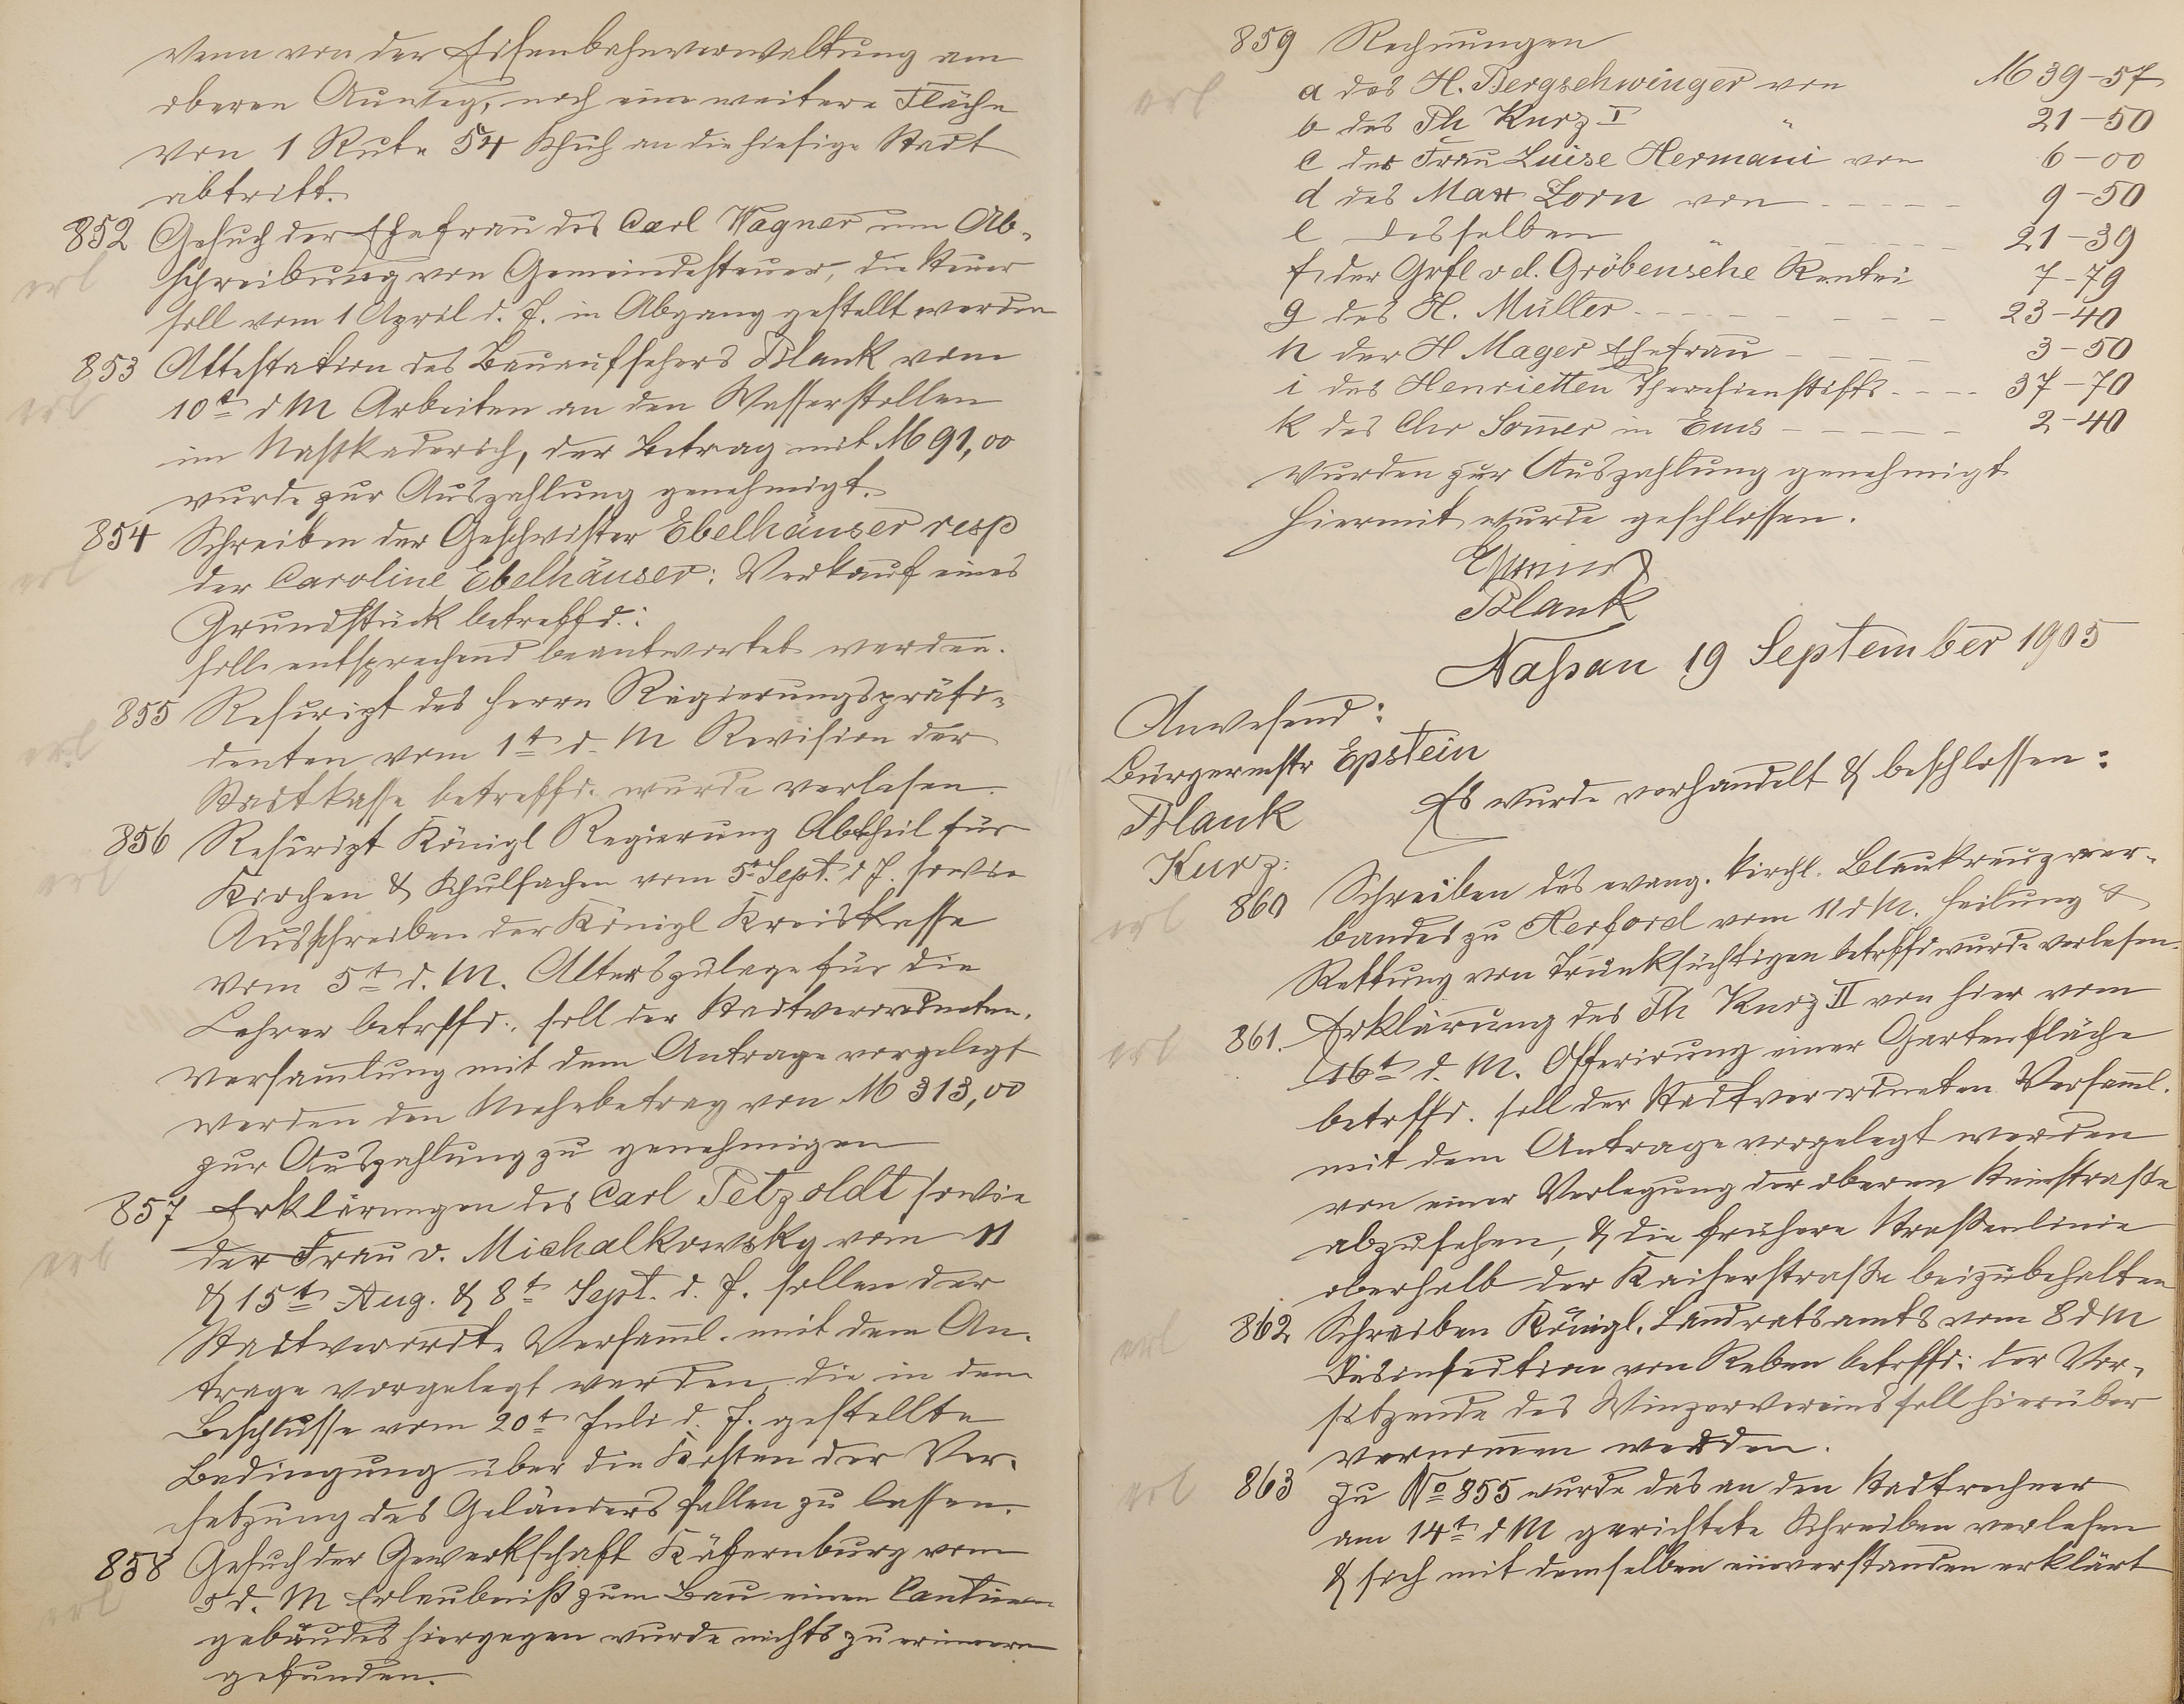 wenn von der Eisenbahnverwaltung am
oberen Auweg, noch eine weitere Fläche
von 1 Rute 54 Schuh an die hiesige Stadt
abtritt.
852 Gesuch der Ehefrau des Carl Wagner um Ab-
erl
schreibung von Gemeindesteuer, die Steuer
soll vom 1 April d. J. in Abgang gestellt werden
853 Attestation des Bauaufsehers Blank vom
erl
10t d M Arbeiten an den Wasserstollen
im , der Betrag mit M 91,00
wurde zur Auszahlung genehmigt.
854 Schreiben der Geschwister Ebelhäuser resp
erl
der Caroline Ebelhäuser: Verkauf eines
Grundstück betreffd.:
soll entsprechend beantwortet werden.
855 Rescript des Herrn Regierungspräsi-
erl
denten vom 1t d. M Revision der
Stadtkasse betreffd. wurde verlesen.
856 Rescript Königl Regierung Abtheil für
erl
Kirchen & Schulsachen vom 5t Sept. d J. sowie
Ausschreiben der Königl Kreiskasse
vom 5t d. M. Alterszulage für die
Lehrer betrffd., soll der Stadtverordneten-
versamlung mit dem Antrage vorgelegt
werden den Mehrbetrag von M 313,00
zur Auszahlung zu genehmigen
857 Erklärungen des Carl Petzoldt sowie
erl
der Frau v. Michalkowsky vom 11
& 15t Aug. & 8t Sept. d. J. sollen der
Stadtverordt. Versaml. mit dem An-
trage vorgelegt werden, die in dem
Beschlusse vom 20t Juli d. J. gestellte
Bedingung über die Kosten der Ver-
setzung des Geländers fallen zu lassen.
858 Gesuch der Gewerkschaft Käfernburg vom
erl
5 d. M Erlaubniß zum Bau einen Cantinen-
gebäudes hiergegen wurde nichts zu erinnern
gefunden.
859 Rechnungen
erl
a des H. Bergschwinger von M 39-57
b des Ph Kurz I " 21-50
c der Frau Luise Hermani von 6-00
d des Max Zorn von 9-50
e desselben 21-39
f. der Grfl v d. Gröbensche Rentei 7-79
g des H. Müller 23-40
h der H Mager Ehefrau 3-50
i des Henrietten Theresienstifts 37-70
k des Chr Somer in Ems 2-40
wurden zur Auszahlung genehmigt
Hiermit wurde geschlossen.
Epstein
Blank
Nassau 19 September 1905
Anwesend:
Bürgermstr Epstein
Es wurde verhandelt & beschlossen:
Blank
Kurz:
860 Schreiben des evang. kirchl. Blaukreuzver-
erl
bandes zu Herford vom 11 d M. Heilung &
Rettung von Trunksüchtigen betrffd wurde verlesen.
861. Erklärung des Ph Kurz II von hier vom
erl
16t d. M. Offerirung einer Gartenfläche
betrffd. soll der Stadtverordneten Versaml.
mit dem Antrage vorgelegt werden
von einer Verlegung der oberen Steinstraße
abzusehen, & die frühere Straßenlinie
oberhalb der Kaiserstraße beizubehalten
862 Schreiben Königl. Landratsamts vom 8 d M
erl
Desinfection von Reben betrffd: der Vor-
sitzende des Winzervereins soll hierüber
vernomen werden.
863 Zu No 855 wurde das an den Stadtrechner
erl
am 14t d M gerichtete Schreiben verlesen
& sich mit demselben einverstanden erklärt